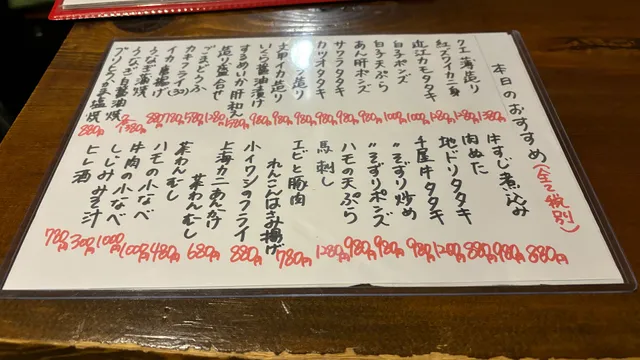 本日のおすすめ(全て税別)
クエ薄造り 1380円
紅ズワイカニ身 1280円
近江カモタタキ 1280円
白子ポンズ 1000円
白子天ぷら 1000円
あん肝ポンズ 980円
サワラタタキ 980円
カツオタタキ 980円
造り 980円
甲イカ造り 980円
いくら醤油漬け 980円
するめいか肝和え 580円
造り盛合せ 1280円
ごまどうふ 580円
カキフライ(3ヶ) 780円
イカ
うなぎ蒲焼
ブリ 塩焼 880円
牛すじ煮込み 880円
肉ぬた 980円
地ドリタタキ 880円
千屋牛タタキ 1200円
〃ズリ炒め 980円
〃ズリポンズ 980円
ハモの天ぷら 980円
馬刺し 1280円
エビと豚肉れんこんはさみ揚げ 780円
小イワシフライ 880円
上海カニあんかけ茶わんむし 680円
茶わんむし 480円
ハモの小なべ 1000円
牛肉の小なべ 1000円
しじみみそ汁 300円
ヒレ酒 780円